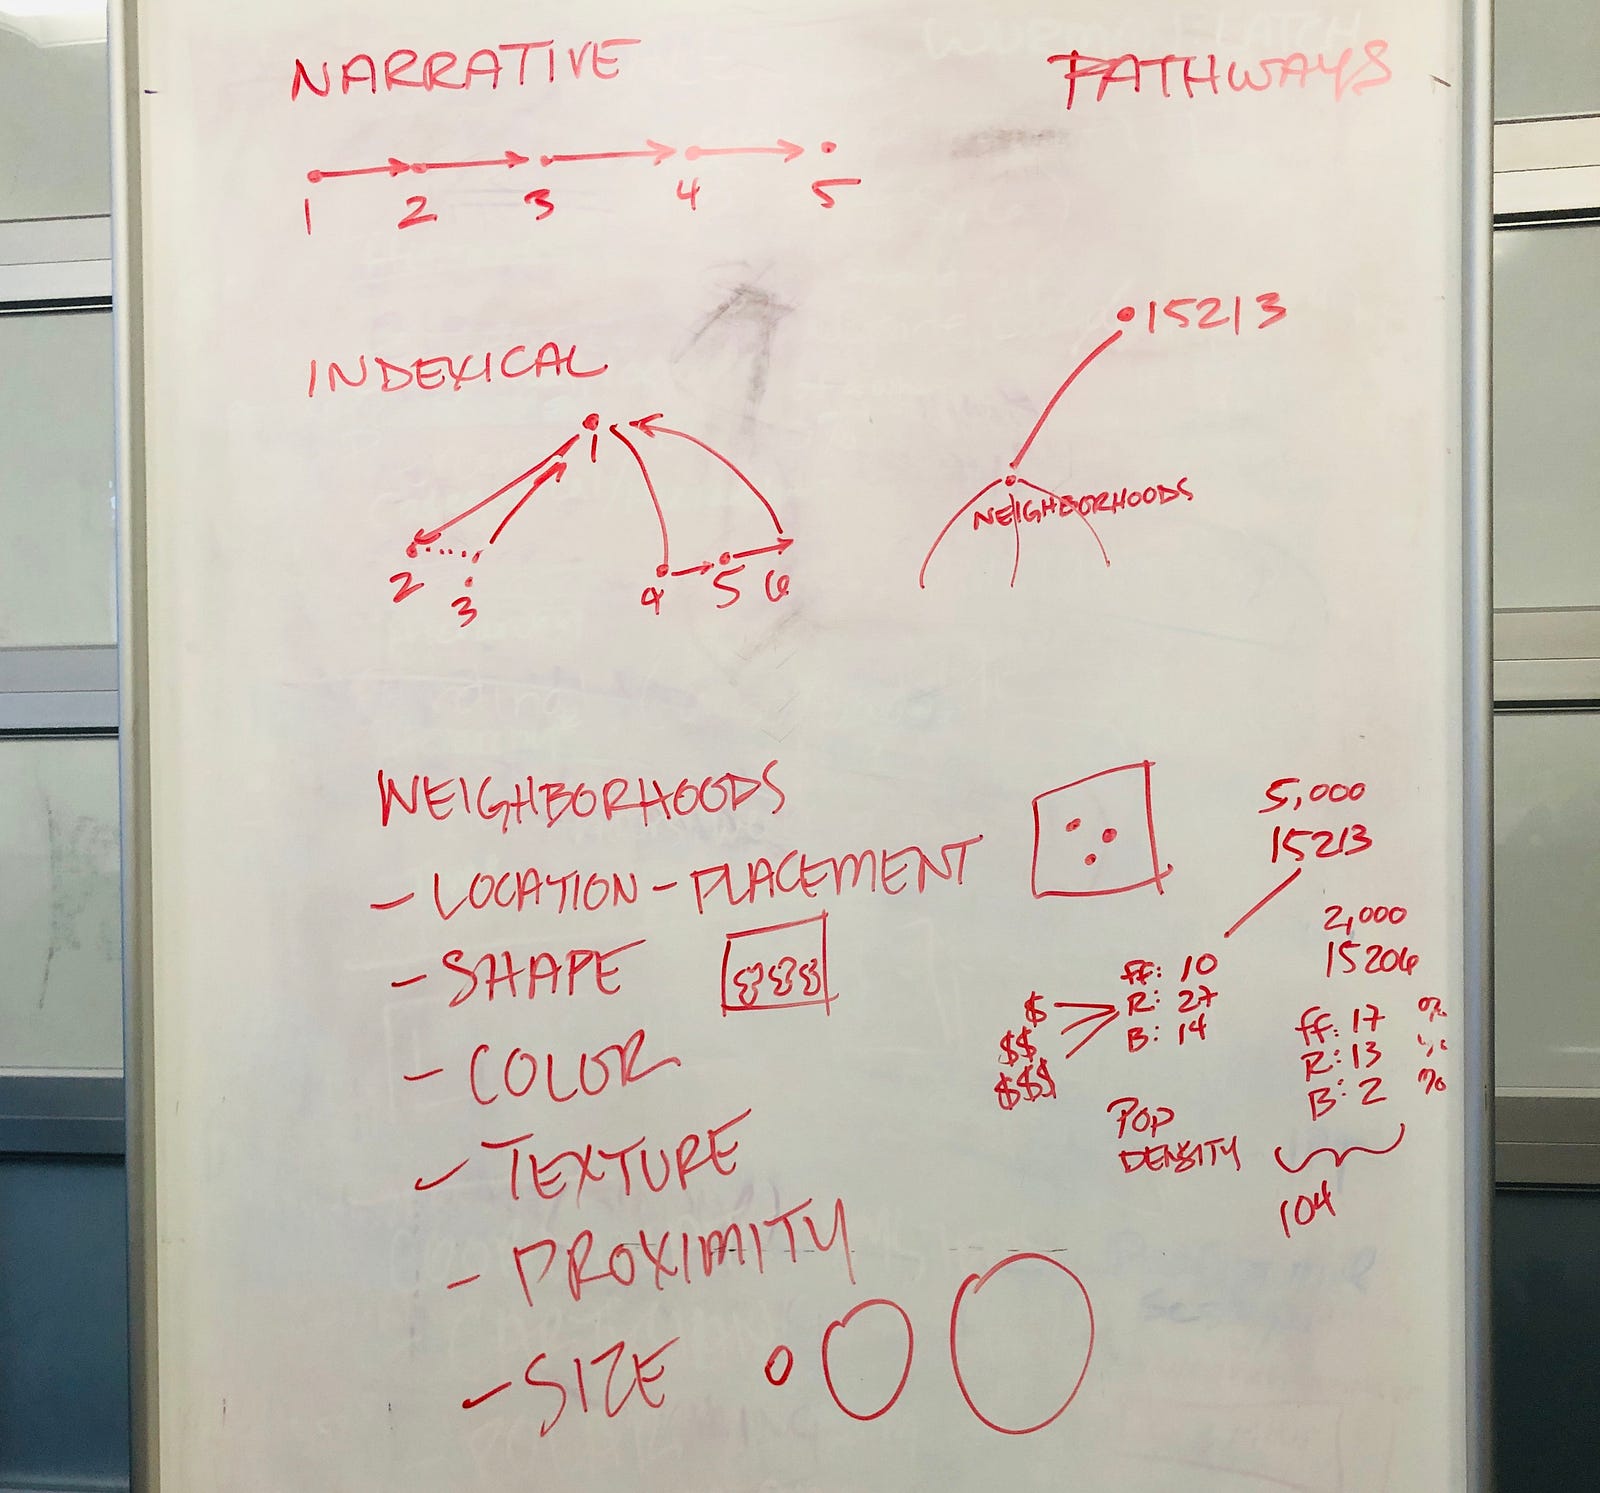 NARRATIVE
PATHWAYS
1 2 3 4 5
15213
INDEXICAL
1
NEIGHBORHOODS
2 3 4 5 6
NEIGHBORHOODS
- LOCATION - PLACEMENT
- SHAPE
- COLOR
- TEXTURE
- PROXIMITY
- SIZE
5,000
15213
2,000
15206
ff: 10
R: 27
B: 14
$
$$
$$$
ff: 17 %
R: 13 %
B: 2 %
POP
DENSITY
104